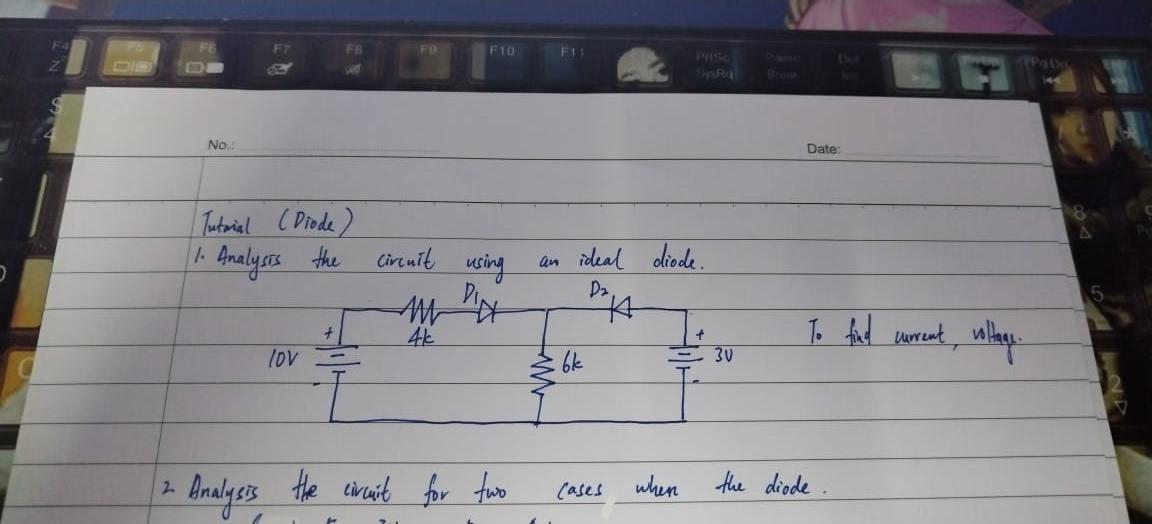 F4 F5 F6 F7 F8 F9 F10 F11 PrtSc Pause Del
Z SysRq Break Ins Pg Dn
S
4
No.: Date:
8
Tutorial (Diode)
1. Analysis the circuit using an ideal diode.
D1 D2
5
+ 4k + To find current, voltage.
10V 6k 3V
- -
2
2 Analysis the circuit for two cases when the diode.